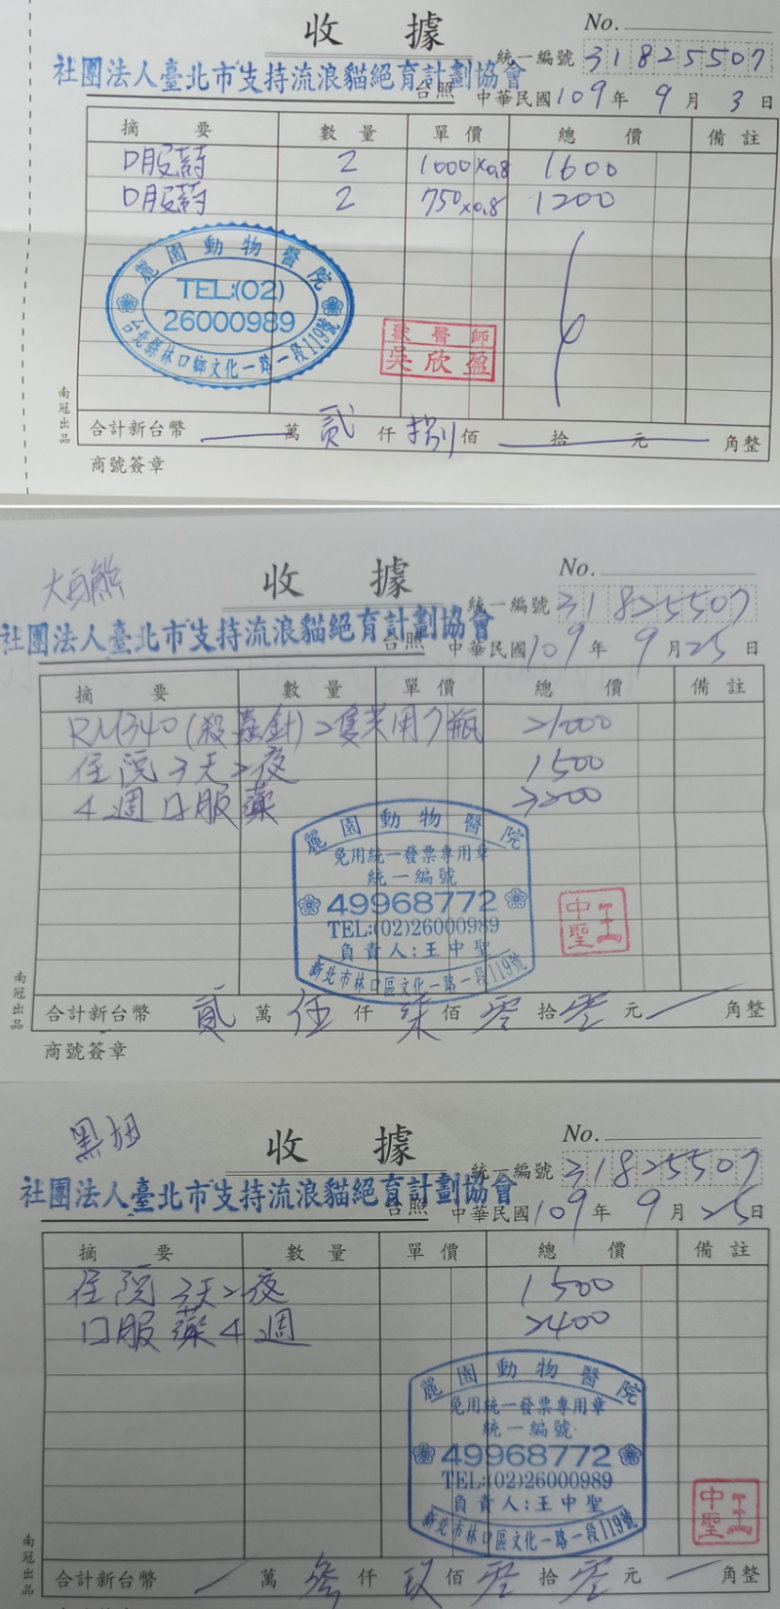 收據
No.
統一編號 31825507
社團法人臺北市支持流浪貓絕育計劃協會
台照 中華民國109年9月3日
摘要 數量 單價 總價 備註
口服葯 2 1000×0.8 1600
口服葯 2 750×0.8 1200
麗園動物醫院
TEL:(02)
26000989
台北縣林口鄉文化一路一段119號
獸醫師
吳欣盈
合計新台幣 萬貳仟捌佰 拾 元 角整
商號簽章
南冠出品
大白熊
收據
No.
統一編號 31825507
社團法人臺北市支持流浪貓絕育計劃協會
台照 中華民國109年9月25日
摘要 數量 單價 總價 備註
RM340(殺蟲針)2隻共用7瓶 21000
住院3天2夜 1500
4週口服藥 3200
麗園動物醫院
免用統一發票專用章
統一編號
49968772
TEL:(02)26000989
負責人:王中聖
新北市林口區文化一路一段119號
王中聖
合計新台幣 貳萬伍仟柒佰零拾零元 角整
商號簽章
南冠出品
黑妞
收據
No.
統一編號 31825507
社團法人臺北市支持流浪貓絕育計劃協會
台照 中華民國109年9月25日
摘要 數量 單價 總價 備註
住院3天2夜 1500
口服藥4週 2400
麗園動物醫院
免用統一發票專用章
統一編號
49968772
TEL:(02)26000989
負責人:王中聖
新北市林口區文化一路一段119號
王中聖
合計新台幣 萬叁仟玖佰零拾零元 角整
南冠出品